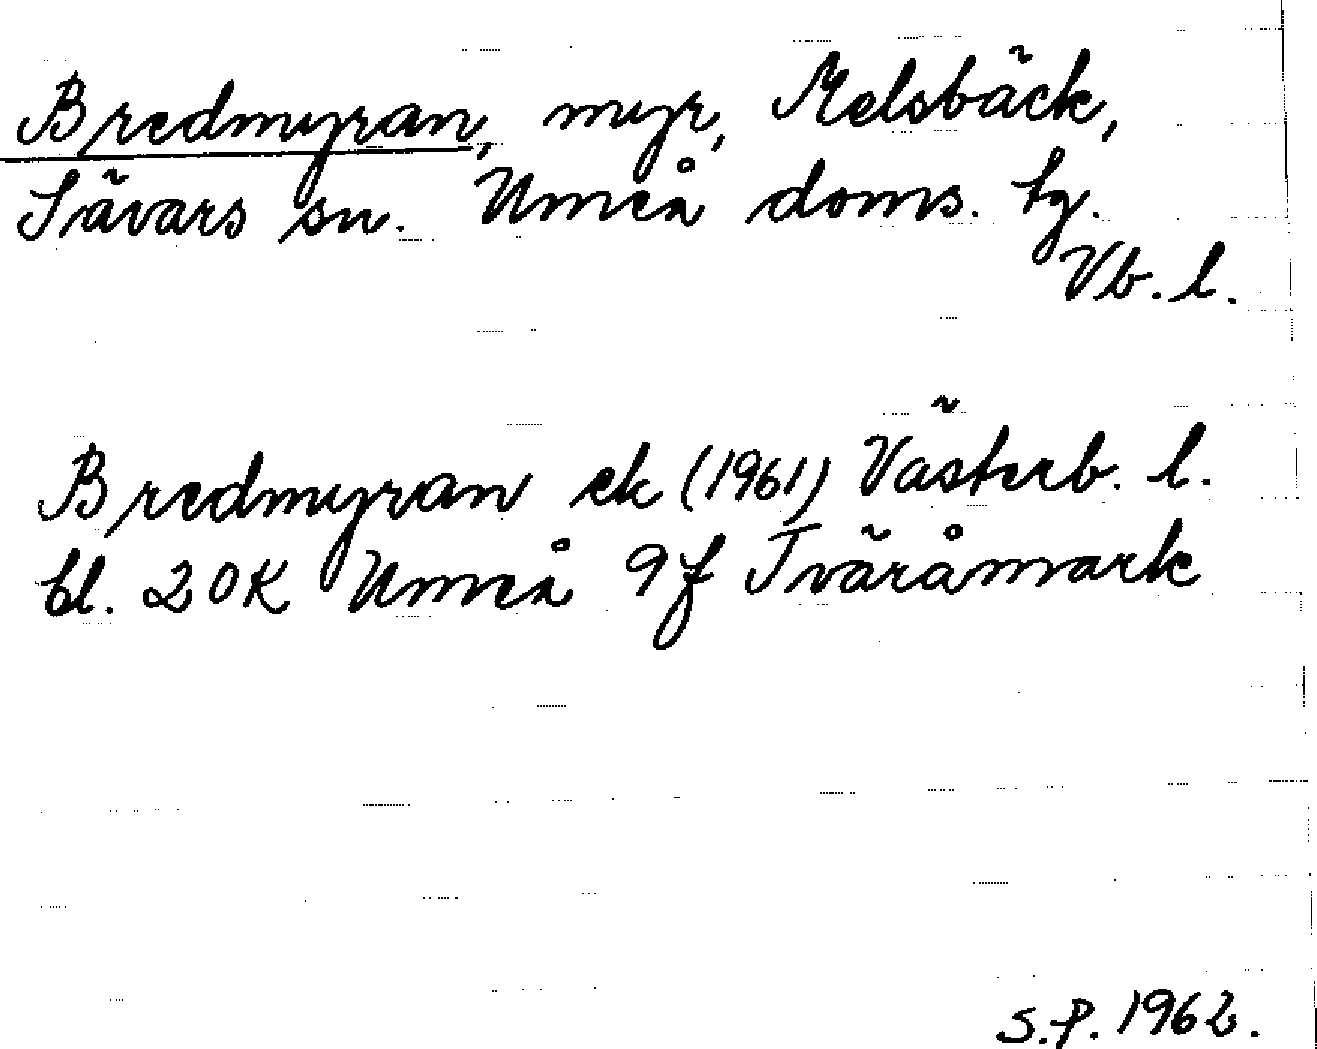 Bredmyran, myr, Kelsbäck,
Sävars sn. Umeå doms. tg.
Vb. l.
Bredmyran ek (1961) Västerb. l.
bl. 20K Umeå 9f Tväråmark
S.P. 1962.